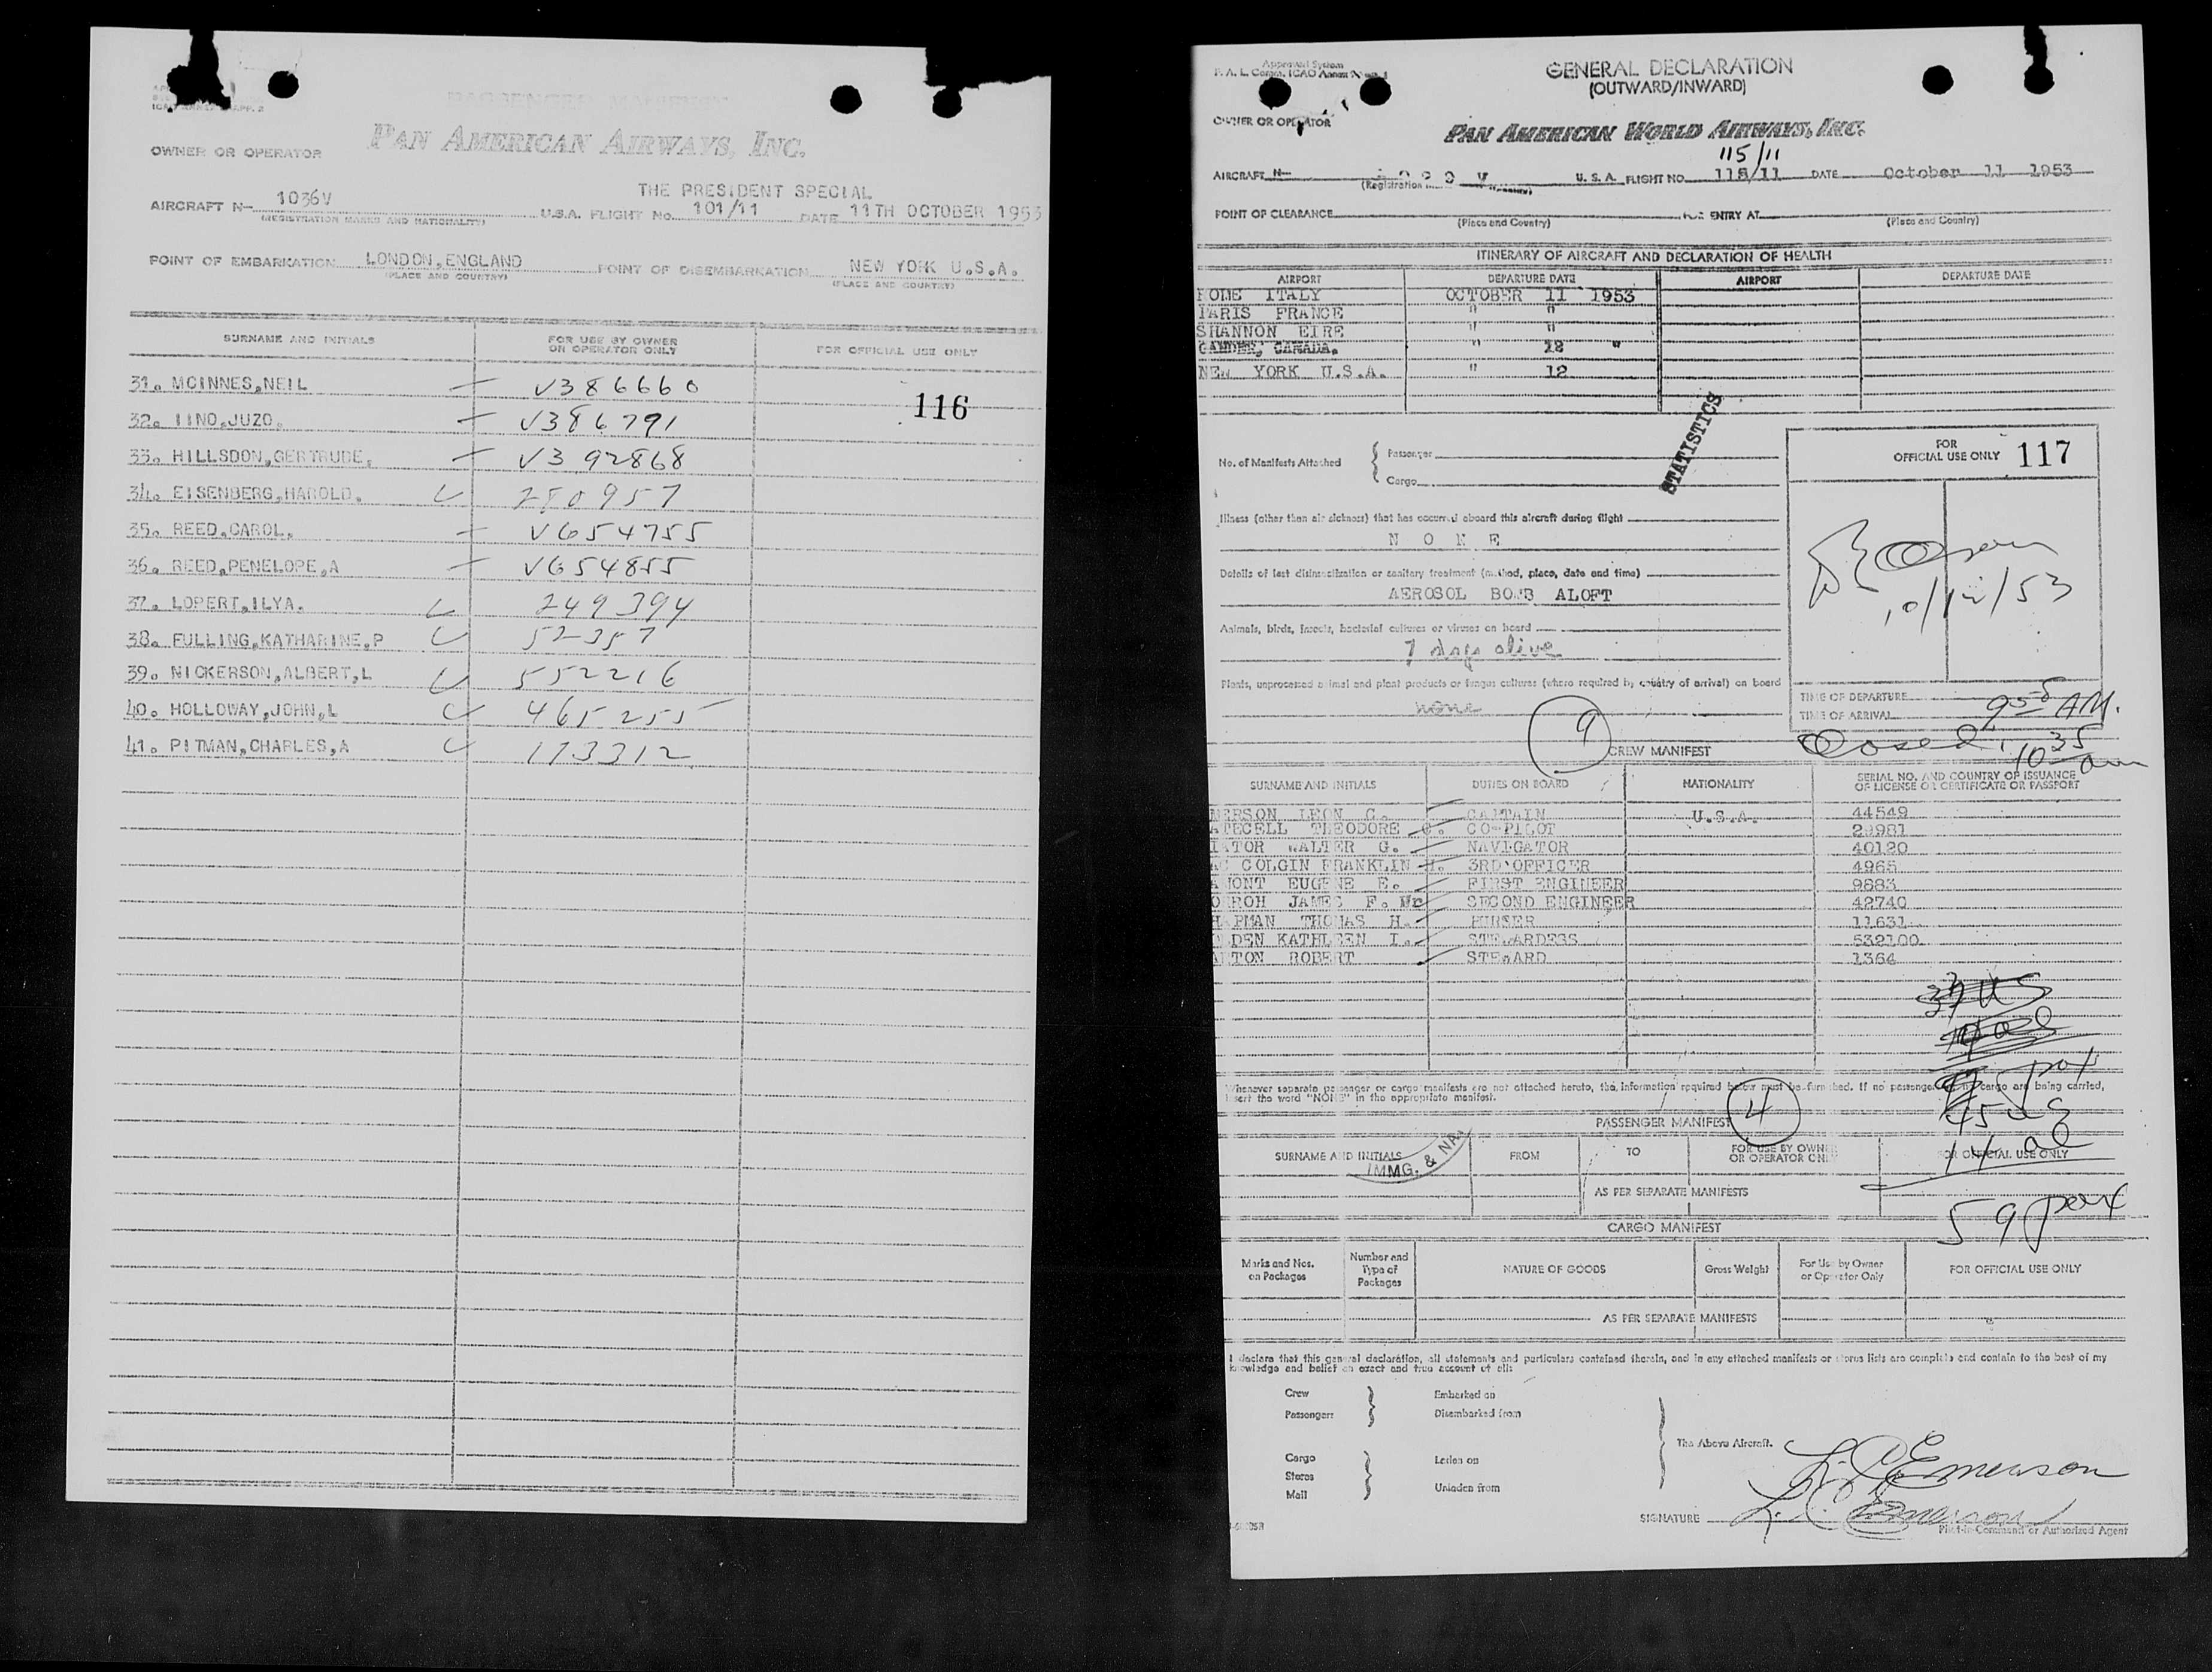 PASSENGER MANIFEST
PAN AMERICAN AIRWAYS, INC.
OWNER OR OPERATOR
THE PRESIDENT SPECIAL
AIRCRAFT N- 1036V U.S.A. FLIGHT NO. 101/11 DATE 11TH OCTOBER 1953
(REGISTRATION MARKS AND NATIONALITY)
POINT OF EMBARKATION LONDON, ENGLAND POINT OF DISEMBARKATION NEW YORK U.S.A.
(PLACE AND COUNTRY) (PLACE AND COUNTRY)
SURNAME AND INITIALS FOR USE BY OWNER OR OPERATOR ONLY FOR OFFICIAL USE ONLY
31. MCINNES,NEIL — V386660
116
32. IINO,JUZO. — V386791
33. HILLSDON,GERTRUDE. — V392868
34. EISENBERG,HAROLD. 280957
35. REED,CAROL. — V654755
36. REED,PENELOPE,A — V654855
37. LOPERT,ILYA. 249394
38. FULLING,KATHARINE,P 52357
39. NICKERSON,ALBERT,L 552216
40. HOLLOWAY,JOHN,L 465255
41. PITMAN,CHARLES,A 173312
Approved System
GENERAL DECLARATION
(OUTWARD/INWARD)
OWNER OR OPERATOR
PAN AMERICAN WORLD AIRWAYS, INC.
115/11
AIRCRAFT N- V U.S.A. FLIGHT NO. 115/11 DATE October 11 1953
POINT OF CLEARANCE ENTRY AT
(Place and Country) (Place and Country)
ITINERARY OF AIRCRAFT AND DECLARATION OF HEALTH
AIRPORT DEPARTURE DATE AIRPORT DEPARTURE DATE
ROME ITALY OCTOBER 11 1953
PARIS FRANCE " "
SHANNON EIRE " "
GANDER, CANADA. " 12 "
NEW YORK U.S.A. " 12
STATISTICS
No. of Manifests Attached { Passenger
Cargo
FOR OFFICIAL USE ONLY 117
Illness (other than air sickness) that has occurred aboard this aircraft during flight
N O N E
Details of last disinsectization or sanitary treatment (method, place, date and time)
AEROSOL BOMB ALOFT
10/12/53
Animals, birds, insects, bacterial cultures or viruses on board
7 dogs alive
Plants, unprocessed animal and plant products or fungus cultures (where required by country of arrival) on board
none
TIME OF DEPARTURE
TIME OF ARRIVAL 9 58 AM.
Closed 10 35 am
9
CREW MANIFEST
SURNAME AND INITIALS DUTIES ON BOARD NATIONALITY SERIAL NO. AND COUNTRY OF ISSUANCE OF LICENSE OR CERTIFICATE OR PASSPORT
MERSON LEON C. CAPTAIN U.S.A. 44549
THEODORE CO-PILOT 29981
IATOR WALTER G. NAVIGATOR 40120
COLGIN FRANKLIN H. 3RD OFFICER 4965
AMONT EUGENE E. FIRST ENGINEER 9683
ROH JAMES F. SECOND ENGINEER 42740
HAPMAN THOMAS H. PURSER 11631
DEN KATHLEEN I. STEWARDESS 532100
TON ROBERT STEWARD 1364
Whenever separate passenger or cargo manifests are not attached hereto, the information required below must be furnished. If no passengers or no cargo are being carried,
insert the word "NONE" in the appropriate manifest.
45 US
14 al
59 pax
4
PASSENGER MANIFEST
SURNAME AND INITIALS FROM TO FOR USE BY OWNER OR OPERATOR ONLY FOR OFFICIAL USE ONLY
IMMG. & NA
AS PER SEPARATE MANIFESTS
CARGO MANIFEST
Marks and Nos. on Packages Number and Type of Packages NATURE OF GOODS Gross Weight For Use by Owner or Operator Only FOR OFFICIAL USE ONLY
AS PER SEPARATE MANIFESTS
I declare that this general declaration, all statements and particulars contained therein, and in any attached manifests or stores lists are complete and contain to the best of my
knowledge and belief an exact and true account of all:
Crew Embarked on
Passengers Disembarked from
The Above Aircraft.
Cargo Laden on
Stores
Mail Unladen from
L. C. Emerson
SIGNATURE L. C. Emerson
Pilot-in-Command or Authorized Agent